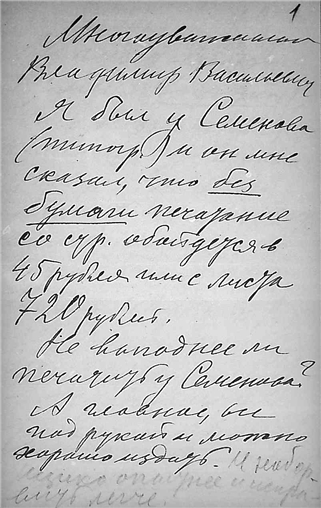 1
Многоуважаемый
Владимир Васильевич
Я был у Семенова
(типогр.) и он мне
сказал, что без
бумаги печатание
со стр. обойдется в
45 рублей или с листа
720 рублей.
Не выгоднее ли
печатать у Семенова?
А главное, вы
под рукой и можно
хорошо издать. И набор
легче.